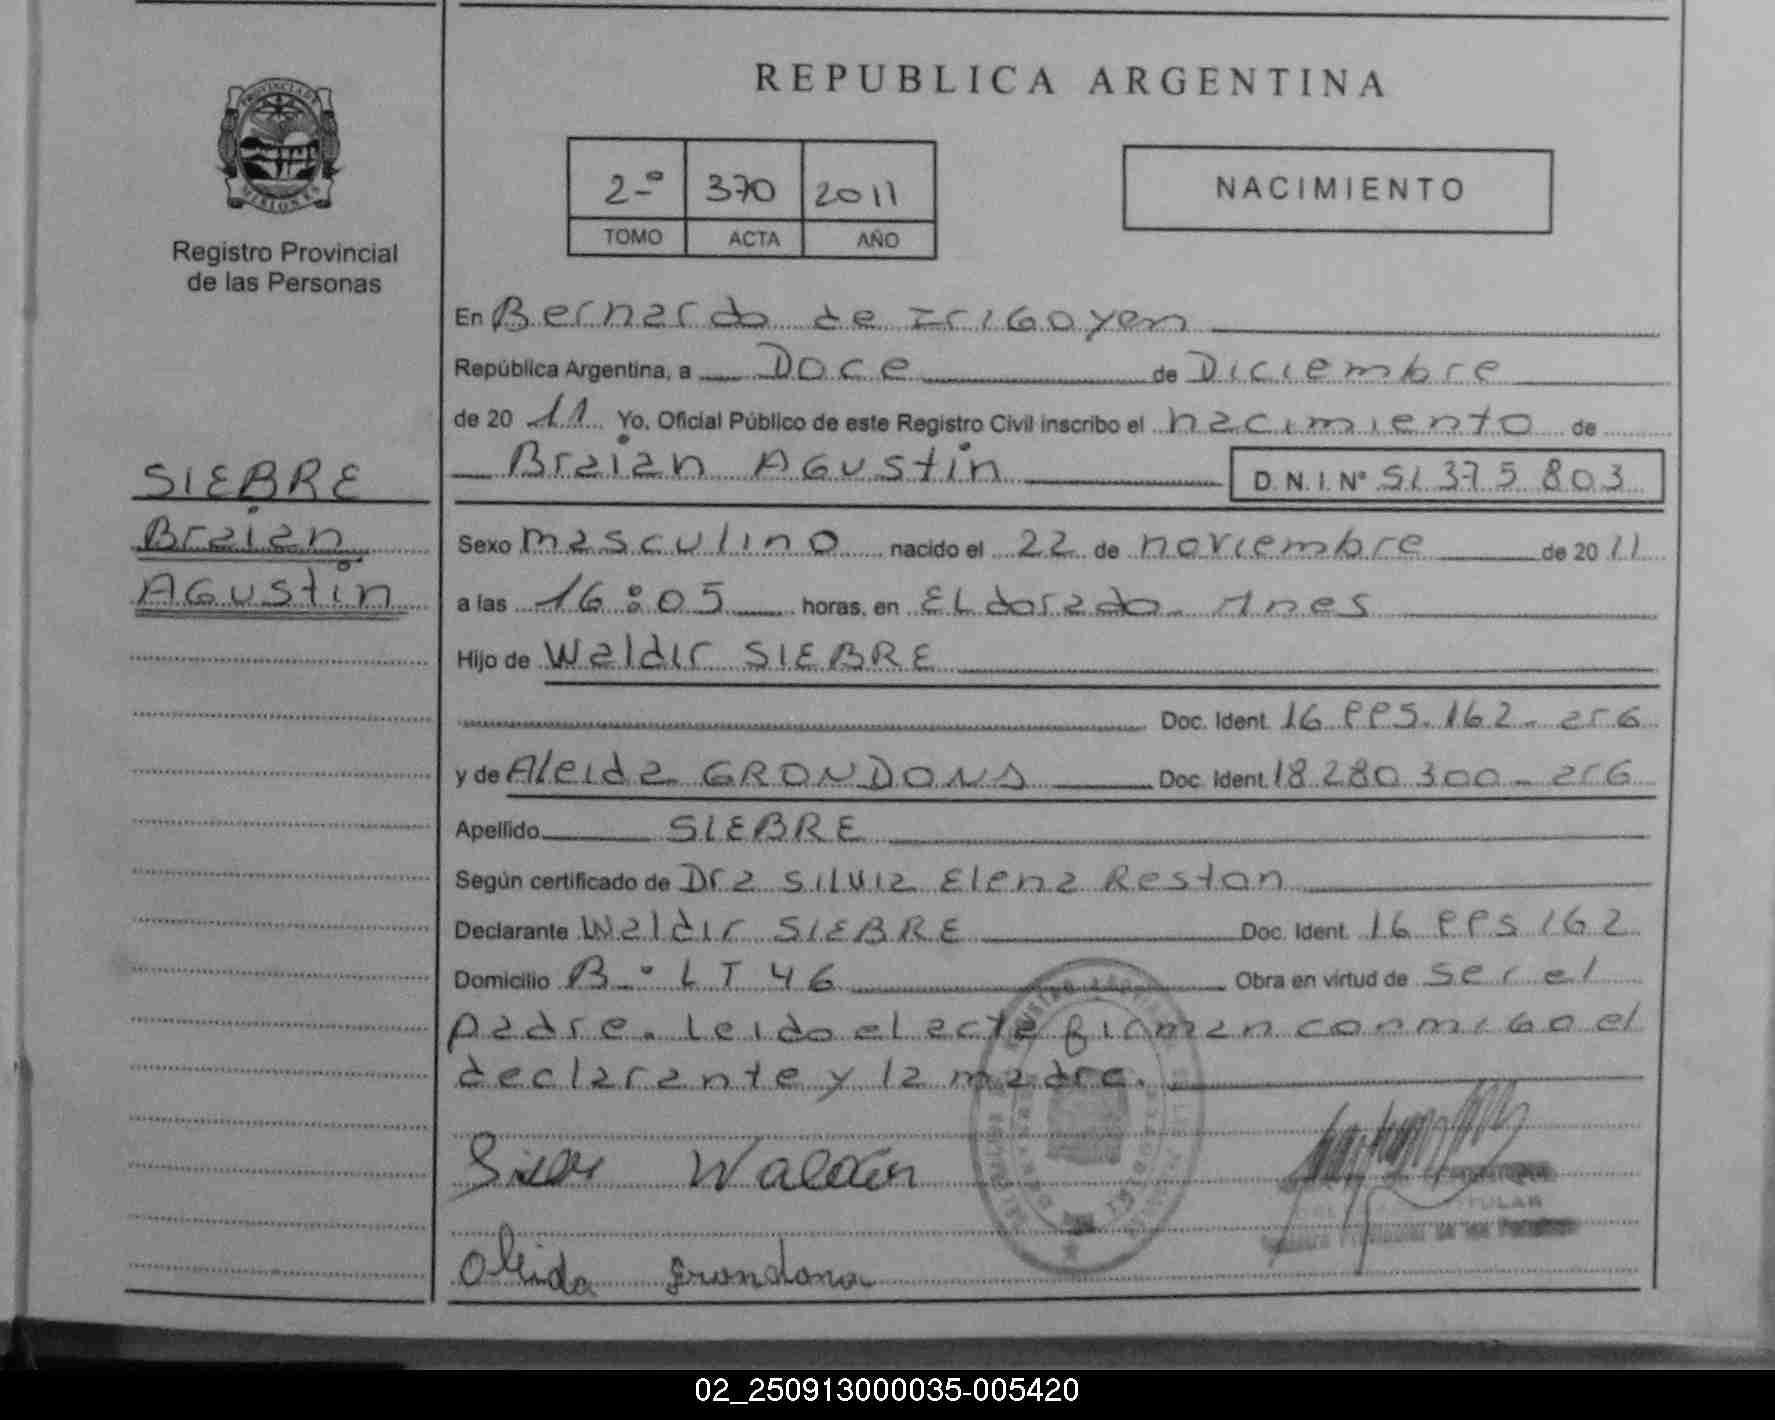 REPUBLICA ARGENTINA
PROVINCIA DE
MISIONES
Registro Provincial
de las Personas
2º 370 2011
TOMO ACTA AÑO
NACIMIENTO
En Bernardo de IriGoyen
República Argentina, a Doce de Diciembre
de 20 11 Yo, Oficial Público de este Registro Civil inscribo el nacimiento de
Braian AGustin D.N.I. Nº 51 375 803
SIEBRE
Braian
AGustin
Sexo masculino nacido el 22 de noviembre de 20 11
a las 16:05 horas, en ELdorado
Hijo de Waldir SIEBRE
Doc. Ident. 16 162 arG
y de Aleida GRONDONA Doc. Ident. 18.280.300 - arG
Apellido SIEBRE
Según certificado de Dra Silvia Elena Reston
Declarante Waldir SIEBRE Doc. Ident. 16 162
Domicilio Bº LT 46 Obra en virtud de ser el
padre. Leido el acta firman conmiGo el
declarante y la madre.
Waldir
Grondona
TITULAR
Registro Provincial de las Personas
02_250913000035-005420